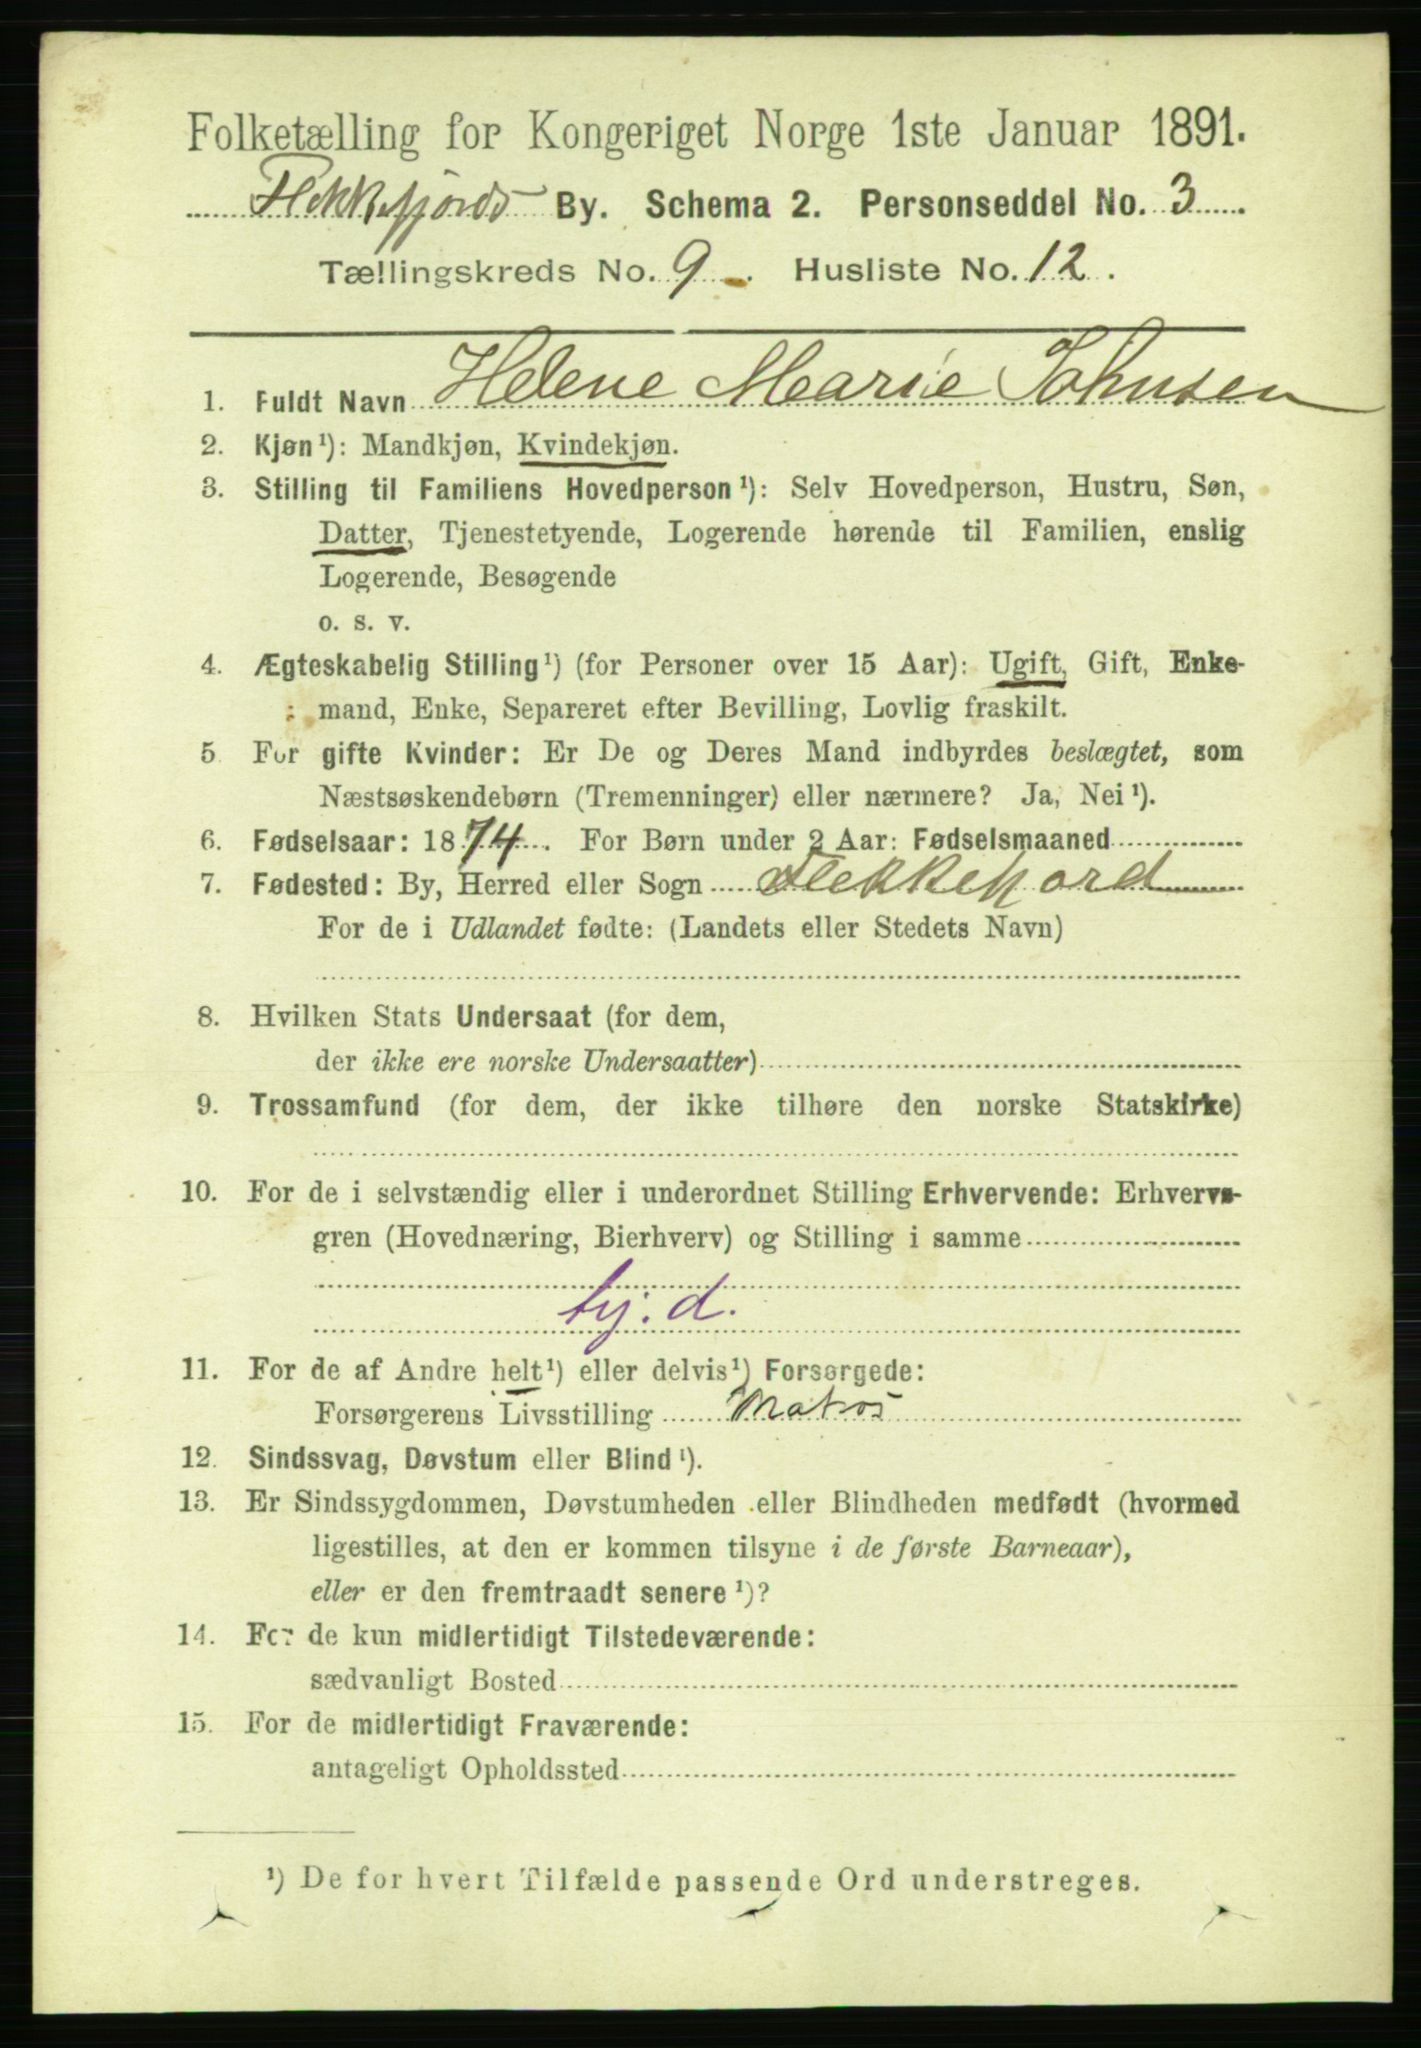 Folketælling for Kongeriget Norge 1ste Januar 1891.
Flekkefjords By. Schema 2. Personseddel No. 3
Tællingskreds No. 9. Husliste No. 12.
1. Fuldt Navn Helene Marie Johnsen
2. Kjøn¹): Mandkjøn, Kvindekjøn.
3. Stilling til Familiens Hovedperson¹): Selv Hovedperson, Hustru, Søn,
Datter, Tjenestetyende, Logerende hørende til Familien, enslig
Logerende, Besøgende
o. s. v.
4. Ægteskabelig Stilling¹) (for Personer over 15 Aar): Ugift, Gift, Enke-
mand, Enke, Separeret efter Bevilling, Lovlig fraskilt.
5 For gifte Kvinder: Er De og Deres Mand indbyrdes beslægtet, som
Næstsøskendebørn (Tremenninger) eller nærmere? Ja, Nei¹).
6. Fødselsaar: 1874. For Børn under 2 Aar: Fødselsmaaned
7. Fødested: By, Herred eller Sogn Flekkefjord
For de i Udlandet fødte: (Landets eller Stedets Navn)
8. Hvilken Stats Undersaat (for dem,
der ikke ere norske Undersaatter)
9. Trossamfund (for dem, der ikke tilhøre den norske Statskirke)
10. For de i selvstændig eller i underordnet Stilling Erhvervende: Erhvervs-
gren (Hovednæring, Bierhverv) og Stilling i samme
tj. d.
11. For de af Andre helt¹) eller delvis¹) Forsørgede:
Forsørgerens Livsstilling Matros
12. Sindssvag, Døvstum eller Blind¹).
13. Er Sindssygdommen, Døvstumheden eller Blindheden medfødt (hvormed
ligestilles, at den er kommen tilsyne i de første Barneaar),
eller er den fremtraadt senere¹)?
14. For de kun midlertidigt Tilstedeværende:
sædvanligt Bosted
15. For de midlertidigt Fraværende:
antageligt Opholdssted
¹) De for hvert Tilfælde passende Ord understreges.